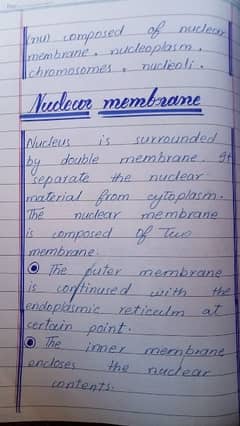 (nu) composed of nuclear
membrane, nucleoplasm,
chromosomes, nucleoli.
Nuclear membrane
Nucleus is surrounded
by double membrane. It
separate the nuclear
material from cytoplasm.
The nuclear membrane
is composed of Two
membrane.
The outer membrane
is continused with the
endoplasmic reticulm at
certain point.
The inner membrane
encloses the nuclear
contents.